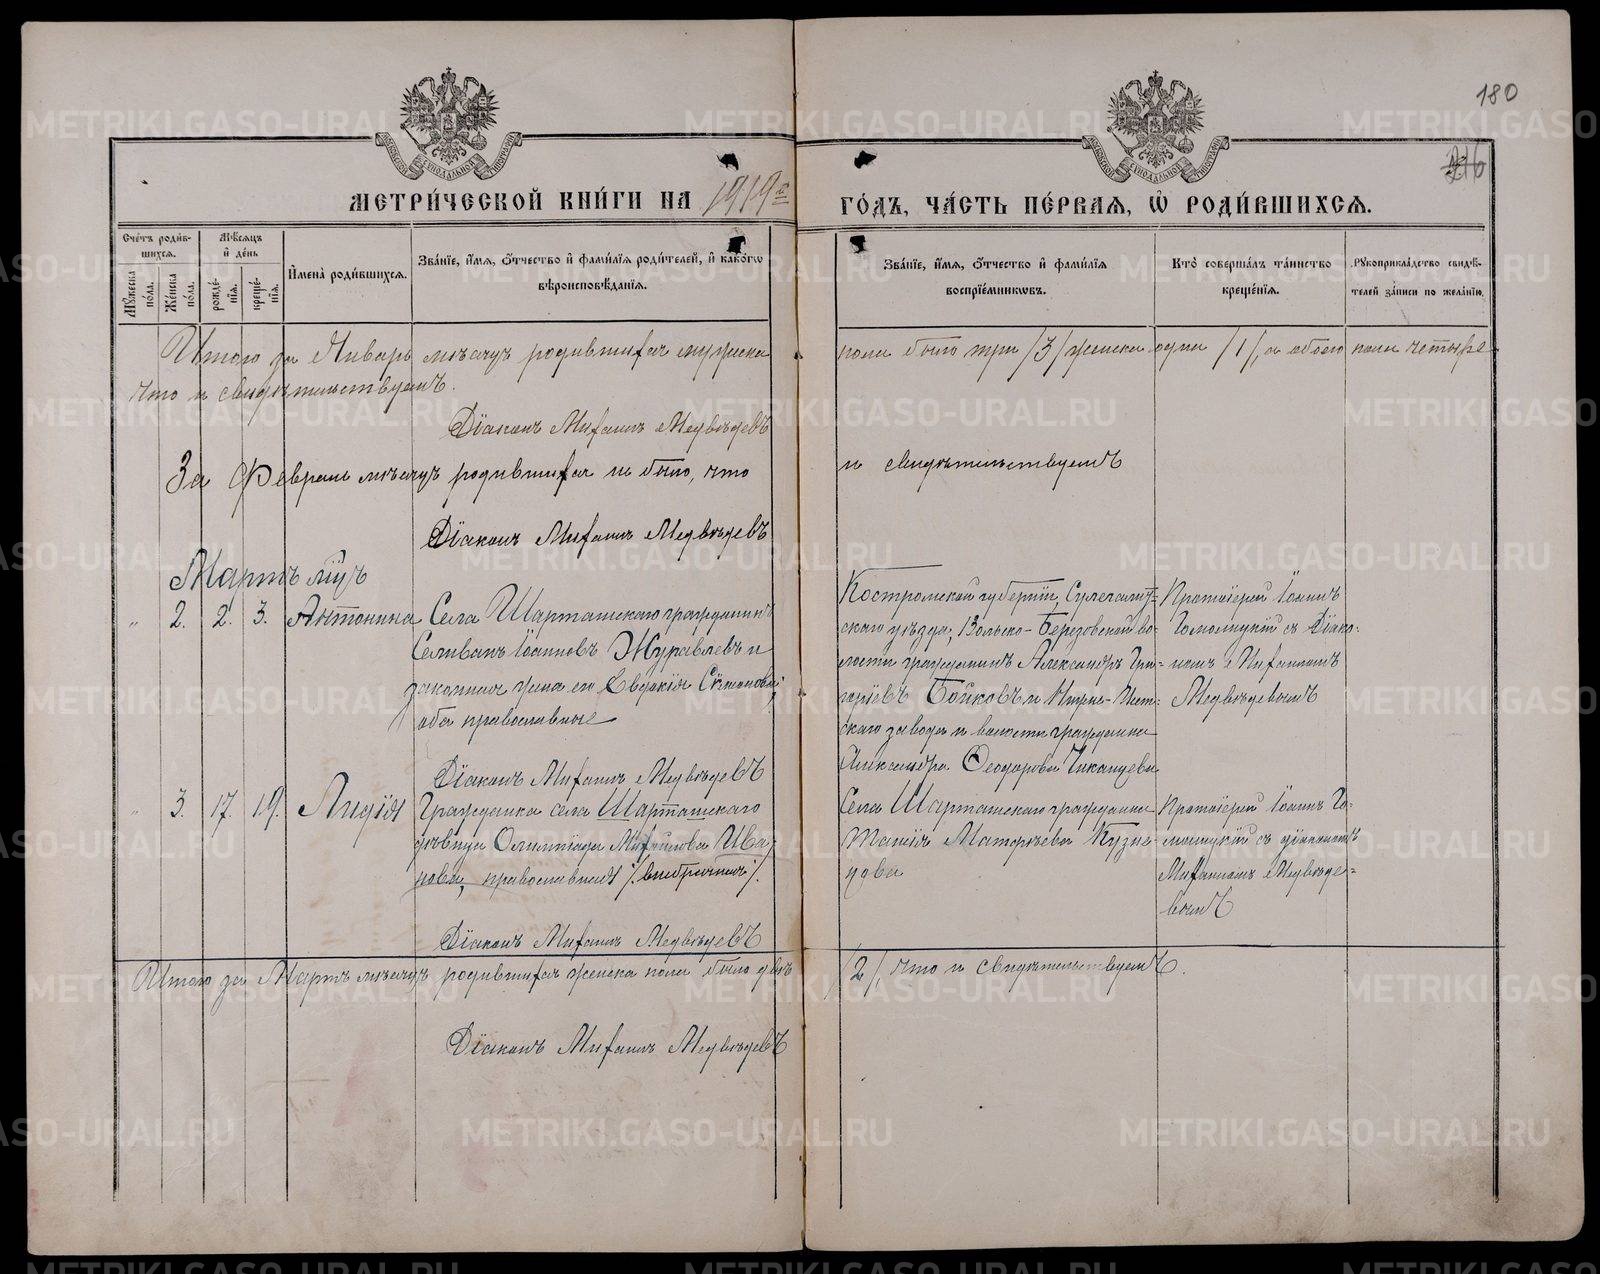 180
216
МЕТРИ́ЧЕСКОЙ КНИ́ГИ НА 1919й ГО́ДЪ, ЧА́СТЬ ПЕ́РВАЯ, Ѡ҆ РОДИ́ВШИХСЯ.
Сче́тъ роди́в-
шихся.
Му́жеска по́ла.
Же́нска по́ла.
Мѣ́сяцъ
и҆ де́нь
рожде́-
нїя.
креще́-
нїя.
И҆мена̀ роди́вшихся.
Зва́нїе, и҆́мя, ѻ҆́тчество и҆ фами́лїя роди́телей, и҆ како́гѡ
вѣроисповѣ́данїя.
Зва́нїе, и҆́мя, ѻ҆́тчество и҆ фами́лїя
воспрїе́мниковъ.
Кто̀ соверша́лъ та́инство
креще́нїя.
Рꙋкоприкла́дство свидѣ́-
телей за́писи по жела́нїю.
Итого за Январь мѣсяцъ родившихся мужеска пола было три /3/ женска одна /1/, а обоего пола четыре
что и свидѣтельствуемъ.
Дїаконъ Михаилъ Медвѣдевъ
За Февраль мѣсяцъ родившихся не было, что и свидѣтельствуемъ
Дїаконъ Михаилъ Медвѣдевъ
Мартъ мїцъ
" 2. 2. 3. Антонина
Села Шарташскаго гражданинъ
Селиванъ Іоанновъ Журавлевъ и
законная жена его Евдокія Стѣпановна;
оба православные
Дїаконъ Михаилъ Медвѣдевъ
Костромской губернїи, Солегалич-
скаго уѣзда, Вольско-Березовской во-
лости гражданинъ Александръ Гри-
горїевъ Бойковъ и Нижне-Исет-
скаго завода и волости гражданка
Александра Ѳеодорова Чиканцева
Протоїерей Іоаннъ
Гомолицкїй съ Дїако-
номъ Михаиломъ
Медвѣдевымъ
" 3. 17. 19. Лидїя
Гражданка села Шарташскаго
дѣвица Олимпїада Михайлова Ива-
нова, православная /внѣбрачная/.
Дїаконъ Михаилъ Медвѣдевъ
Села Шарташскаго гражданка
Таисїя Матѳѣева Кузне-
цова
Протоїерей Іоаннъ Го-
молицкїй съ дїакономъ
Михаиломъ Медвѣде-
вымъ
Итого за Мартъ мѣсяцъ родившихся женска пола было двѣ /2/, что и свидѣтельствуемъ.
Дїаконъ Михаилъ Медвѣдевъ
METRIKI.GASO-URAL.RU